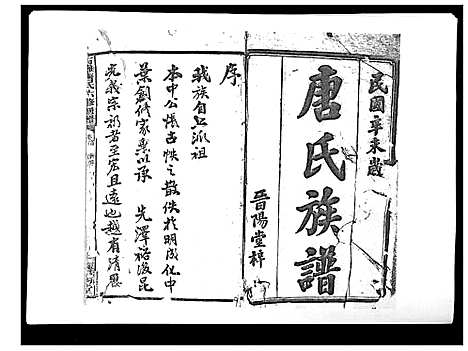 民國辛未歲
唐氏族譜
晉陽堂梓
序
我族自上派祖
本中公悵古帙之散佚於明成化中
葉創修家乘以承 先澤裕後昆
光義宗祊者至宏且遠也越有清